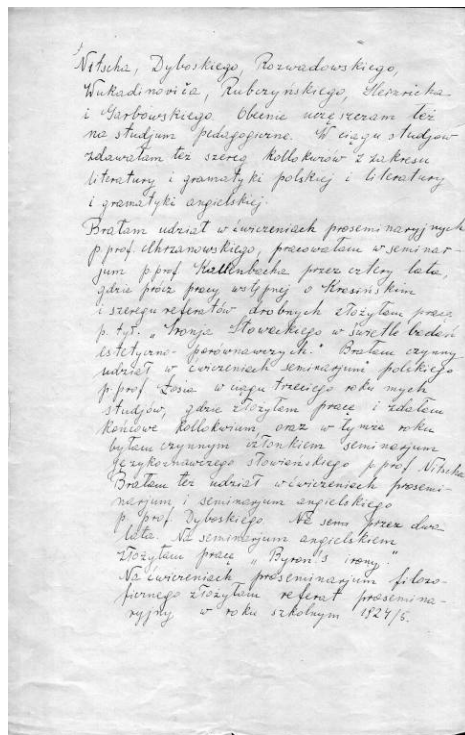 Nitscha, Dyboskiego, Rozwadowskiego,
Wukadinoviča, Rubczyńskiego, Heinricha
i Garbowskiego. Obecnie uczęszczam też
na studjum pedagogiczne. W ciągu studjów
zdawałam też szereg kollokwiów z zakresu
literatury i gramatyki polskiej i literatury
i gramatyki angielskiej.
Brałam udział w ćwiczeniach proseminaryjnych
p. prof. Chrzanowskiego, pracowałam w seminar-
jum p. prof. Kallenbacha przez cztery lata,
gdzie prócz pracy wstępnej o Krasińskim
i szeregu referatów drobnych złożyłam pracę
p. tyt. „Ironja Słowackiego w świetle badań
estetyczno-porównawczych." Brałam czynny
udział w ćwiczeniach seminarjum polskiego
p. prof. Łosia w ciągu trzeciego roku mych
studjów, gdzie złożyłam pracę i zdałam
końcowe kollokwium, oraz w tymże roku
byłam czynnym członkiem seminarjum
językoznawczego słowiańskiego p. prof. Nitscha
Brałam też udział w ćwiczeniach prosemi-
narjum i seminarjum angielskiego
p. prof. Dyboskiego. Na semi przez dwa
lata. Na seminarjum angielskiem
złożyłam pracę „Byron's irony."
Na ćwiczeniach proseminarjum filozo-
ficznego złożyłam referat prosemina-
ryjny w roku szkolnym 1924/5.